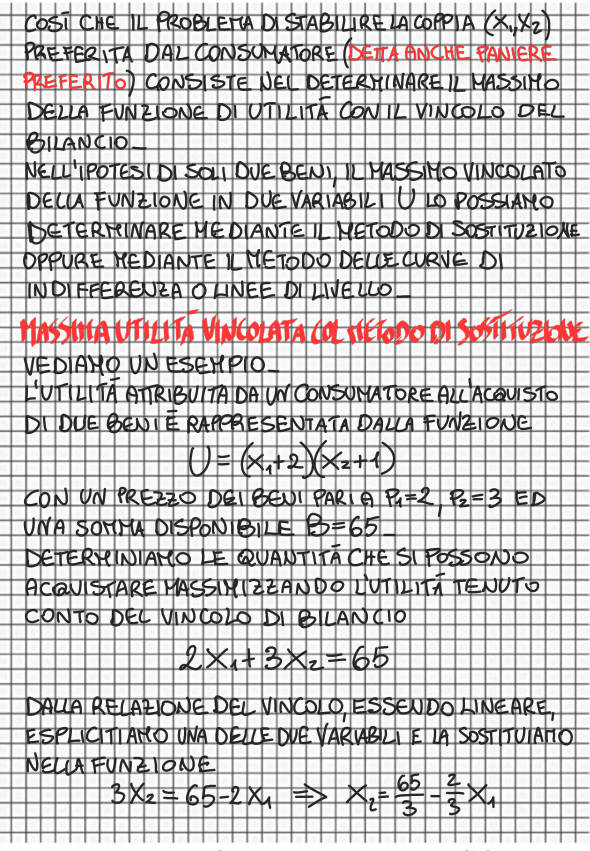 COSÌ CHE IL PROBLEMA DI STABILIRE LA COPPIA (X₁,X₂)
PREFERITA DAL CONSUMATORE (DETTA ANCHE PANIERE
PREFERITO) CONSISTE NEL DETERMINARE IL MASSIMO
DELLA FUNZIONE DI UTILITÀ CON IL VINCOLO DEL
BILANCIO_
NELL'IPOTESI DI SOLI DUE BENI, IL MASSIMO VINCOLATO
DELLA FUNZIONE IN DUE VARIABILI U LO POSSIAMO
DETERMINARE MEDIANTE IL METODO DI SOSTITUZIONE
OPPURE MEDIANTE IL METODO DELLE CURVE DI
INDIFFERENZA O LINEE DI LIVELLO_
MASSIMA UTILITÀ VINCOLATA COL METODO DI SOSTITUZIONE
VEDIAMO UN ESEMPIO_
L'UTILITÀ ATTRIBUITA DA UN CONSUMATORE ALL'ACQUISTO
DI DUE BENI È RAPPRESENTATA DALLA FUNZIONE
U = (X₁+2)(X₂+1)
CON UN PREZZO DEI BENI PARI A P₁=2, P₂=3 ED
UNA SOMMA DISPONIBILE B=65_
DETERMINIAMO LE QUANTITÀ CHE SI POSSONO
ACQUISTARE MASSIMIZZANDO L'UTILITÀ TENUTO
CONTO DEL VINCOLO DI BILANCIO
2X₁ + 3X₂ = 65
DALLA RELAZIONE DEL VINCOLO, ESSENDO LINEARE,
ESPLICITIAMO UNA DELLE DUE VARIABILI E LA SOSTITUIAMO
NELLA FUNZIONE
3X₂ = 65-2X₁ ⇒ X₂ = 65/3 - 2/3 X₁